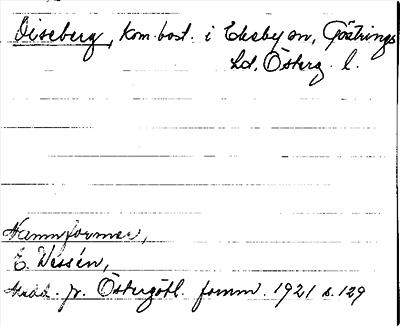 Diseberg, kom. bost. i Ekeby sn, Göstrings
hd, Österg. l.
Namnformer,
E. Wessén,
Medd. fr. Östergötl. fornm. 1921 s. 129